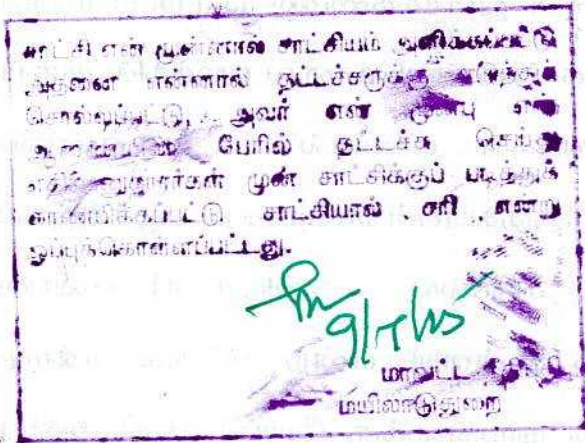 சாட்சி என் முன்னால் சாட்சியம் அளிக்கப்பட்டு
அதனை என்னால் தட்டச்சருக்கு எடுத்துச்
சொல்லப்பட்டு, அவர் என் முன்பு
பேரில் தட்டச்சு செய்து
முன் சாட்சிக்குப் படித்துக்
காண்பிக்கப்பட்டு சாட்சியால் சரி என்று
ஒப்புக்கொள்ளப்பட்டது.
மாவட்ட
மயிலாடுதுறை